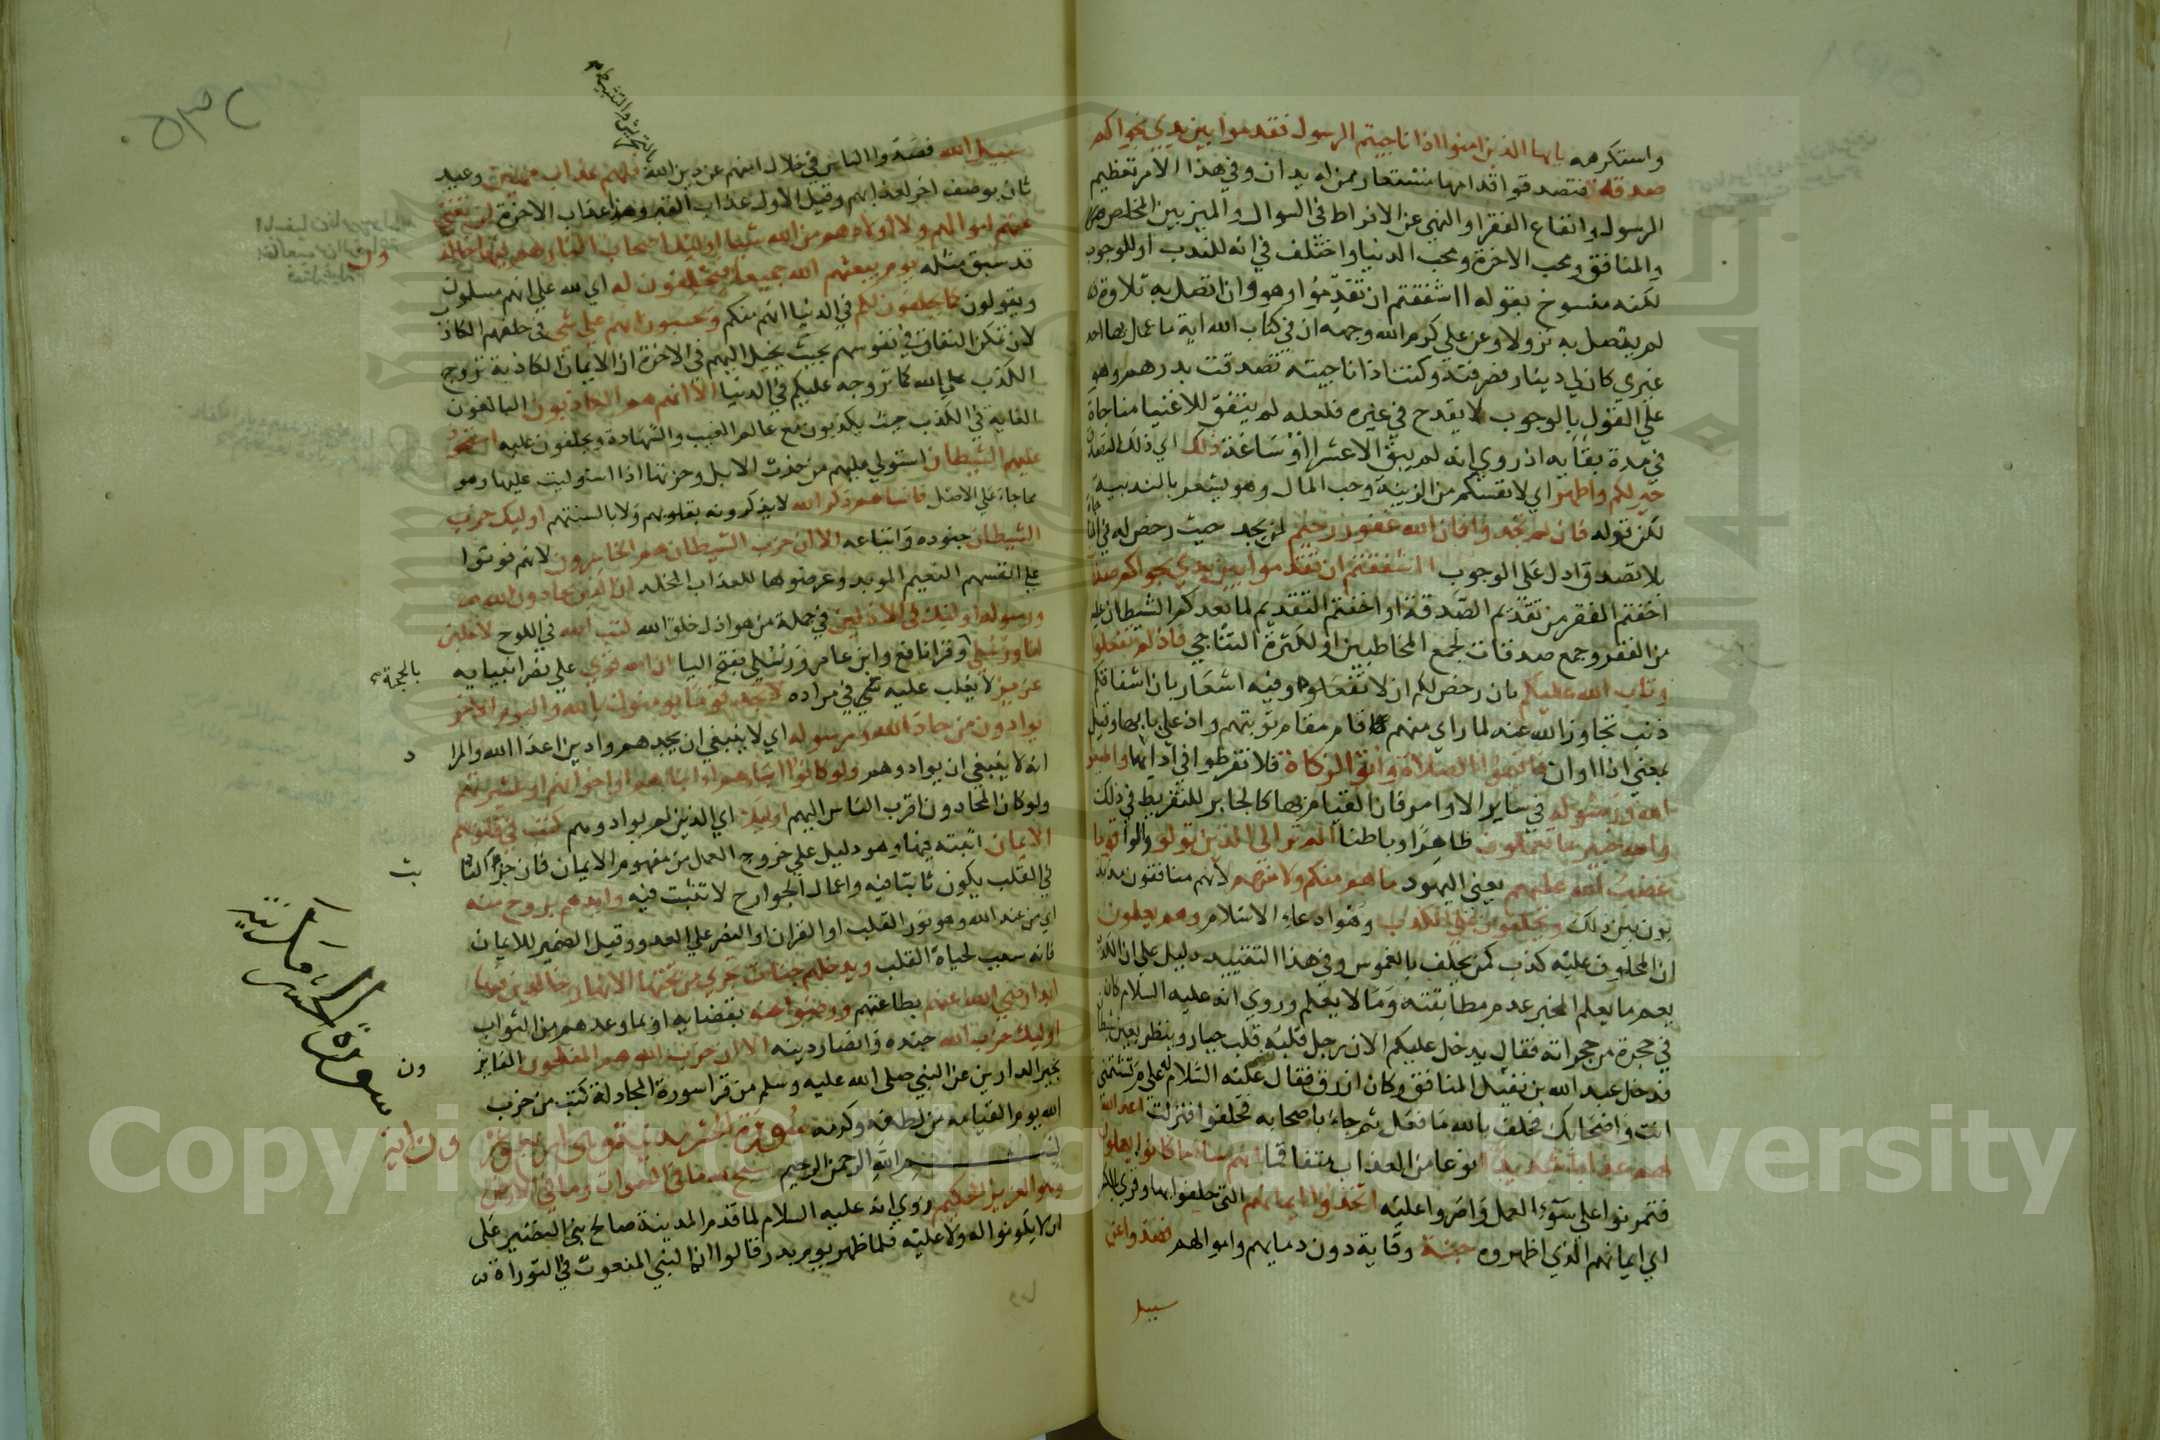 واستكرهه يايها الذين امنوا اذا ناجيتم الرسول فقدموا بين يدي نجواكم
صدقة فتصدقوا قدامها مستعار ممن له يدان وفي هذا الامر تعظيم
الرسول وانفاع الفقرا والنهي عن الافراط في السوال والميز بين المخلص
والمنافق ومحب الاخرة ومحب الدنيا واختلف في انه للندب او للوجوب
لكنه منسوخ بقوله ااشفقتم ان تقدموا وهو وان اتصل به تلاوة
لم يتصل به نزولا وعن علي كرم الله وجهه ان في كتاب الله اية ما عمل بها احد
غيري كان لي دينار فصرفته وكنت اذا ناجيته تصدقت بدرهم وهو
على القول بالوجوب لا يقدح في غيره فلعله لم يتفق للاغنيا مناجاة
في مدة بقايه اذ روي انه لم يبق الا عشرا او ساعة ذلك اي ذلك التصدق
خير لكم واطهر اي لانفسكم من الزينة وحب المال وهو يشعر بالندبية
لكن قوله فان لم تجدوا فان الله غفور رحيم لمن يجد حيث رخص له في
بلا تصدق ادل على الوجوب ااشفقتم ان تقدموا بين يدي نجواكم
اخفتم الفقر من تقديم الصدقة او اخفتم التقديم لما يعدكم الشيطان عليه
من الفقر وجمع صدقات لجمع المخاطبين او لكثرة التناجي فاذ لم تفعلوا
وتاب الله عليكم بان رخص لكم ان لا تفعلوه وفيه اشعار بان اشفاقكم
ذنب تجاوز الله عنه لما راي منهم قام مقام توبتهم واذ علي بابها وقيل
بمعني اذا او ان فاقيموا الصلاة واتوا الزكاة فلا تفرطوا في ادايها واطيعوا
الله ورسوله في ساير الاوامر فان القيام بها كالجابر للتفريط في ذلك
والله خبير بما تعملون ظاهرا وباطنا الم تر الى الذين تولوا والوا قوما
غضب الله عليهم يعني اليهود ما هم منكم ولا منهم لانهم منافقون مذبذ
بون بين ذلك ويحلفون على الكذب وهو ادعاء الاسلام وهم يعلمون
ان المحلوف عليه كذب كمن يحلف بالغموس وفي هذا التقييد دليل على ان الكذب
يعم ما يعلم المخبر عدم مطابقته وما لا يعلم وروي انه عليه السلام كان
في حجرة من حجراته فقال يدخل عليكم الان رجل قلبه قلب جبار وينظر بعين شيطان
فدخل عبد الله بن نفيل المنافق وكان ازرق فقال عليه السلام له علي م تشتمني
انت واصحابك فحلف بالله ما فعل ثم جاء باصحابه فحلفوا فنزلت اعد الله
لهم عذابا شديدا نوعا من العذاب متفاقما انهم ساء ما كانوا يعملون
فتمرنوا على سوء العمل واصروا عليه اتخذوا ايمانهم التي حلفوا بها وقري بالكسر
اي ايمانهم الذي اظهروه جنة وقاية دون دمايهم واموالهم فصدوا عن
سبيل
٥٣٢
بالتحريش والتثبيط
سبيل الله فصدوا الناس في خلال امنهم عن دين الله فلهم عذاب مهين وعيد
ثان بوصف اخر لعذابهم وقيل الاول عذاب القبر وهذا عذاب الاخرة لن تغني
عنهم اموالهم ولا اولادهم من الله شيئا اوليك اصحاب النار هم فيها خالد
ون
قد سبق مثله يوم يبعثهم الله جميعا فيحلفون له اي لله علي انهم مسلمون
ويقولون كما يحلفون لكم في الدنيا انهم منكم ويحسبون انهم علي شي في حلفهم الكاذب
لان تمكن النفاق في نفوسهم بحيث يخيل اليهم في الاخرة ان الايمان الكاذبة تروج
الكذب على الله كما تروجه عليكم في الدنيا الا انهم هم الكاذبون البالغون
الغاية في الكذب حيث يكذبون مع عالم الغيب والشهادة ويحلفون عليه استحوذ
عليهم الشيطان استولي عليهم من حذت الابل وحزتها اذا استوليت عليها وهو
مما جاء على الاصل فانساهم ذكر الله لا يذكرونه بقلوبهم ولا بالسنتهم اوليك حزب
الشيطان جنوده واتباعه الا ان حزب الشيطان هم الخاسرون لانهم فوتوا
علي انفسهم النعيم الموبد وعرضوها للعذاب المخلد ان الذين يحادون الله
ورسوله اوليك في الاذلين في جملة من هو اذل خلق الله كتب الله في اللوح لاغلبن
انا ورسلي وقرا نافع وابن عامر ورسلي بفتح اليا ان الله قوي علي نصر انبيايه
بالحجة
عزيز لا يغلب عليه شي في مراده لا تجد قوما يومنون بالله واليوم الاخر
يوادون من حاد الله ورسوله اي لا ينبغي ان يجدهم وادين اعدا الله والمرا
د
انه لا ينبغي ان يوادوهم ولو كانوا اباهم او ابناهم او اخوانهم او عشيرتهم
ولو كان المحادون اقرب الناس اليهم اوليك اي الذين لم يوادوهم كتب في قلوبهم
الايمان اثبته فيها وهو دليل علي خروج العمل من مفهوم الايمان فان جزء الثا
بت
في القلب يكون ثابتا فيه واعمال الجوارح لا تثبت فيه وايدهم بروح منه
اي من عند الله وهو نور القلب او القران او النصر علي العدو وقيل الضمير للايمان
فانه سبب لحياة القلب ويدخلهم جنات تجري من تحتها الانهار خالدين فيها
ابدا رضي الله عنهم بطاعتهم ورضوا عنه بقضايه او بما وعدهم من الثواب
اوليك حزب الله جنده وانصار دينه الا ان حزب الله هم المفلحون الفايز
ون
بخير الدارين عن النبي صلى الله عليه وسلم من قرا سورة المجادلة كتب من حزب
الله يوم القيامة من لطفه وكرمه سورة الحشر مدنية وهي اربع وعشر
ون اية
بسم الله الرحمن الرحيم سبح لله ما في السموات وما في الارض
وهو العزيز الحكيم روي انه عليه السلام لما قدم المدينة صالح بني النضير على
ان لا يكونوا له ولا عليه فلما ظهر يوم بدر قالوا انه النبي المنعوت في التوراة
سورة الحشر
Copyright © King Saud University